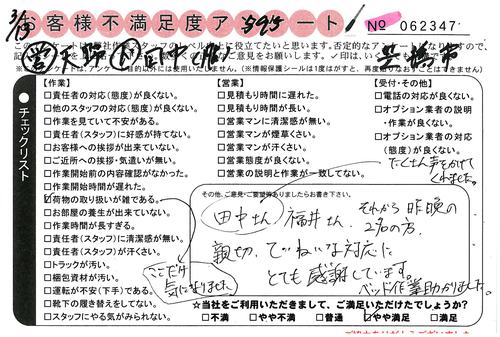 3/13
お客様不満足度アンケート
No 062347
このアンケートは当社作業スタッフのレベル向上に役立てたいと思います。否定的なアンケートになりますので、
【作業】
□責任者の対応(態度)が良くない。
□他のスタッフの対応(態度)が良くない。
□作業を見ていて不安がある。
□責任者(スタッフ)に好感が持てない。
□お客様への挨拶が出来ていない。
□ご近所への挨拶・気遣いが無い。
□作業開始前の内容確認がなかった。
□作業開始時間が遅れた。
☑荷物の取り扱いが雑である。
□お部屋の養生が出来ていない。
□作業時間が長すぎる。
□責任者(スタッフ)に清潔感が無い。
□責任者(スタッフ)が汗くさい。
□トラックが汚い。
□梱包資材が汚い。
□運転が不安(下手)である。
□靴下の履き替えをしてない。
□スタッフにやる気がみられない。
【営業】
□見積もり時間に遅れた。
□見積もり時間が長い。
□営業マンに清潔感が無い。
□営業マンが煙草くさい。
□営業マンが汗くさい。
□営業態度が良くない。
□営業の説明と作業が一致してない。
【受付・その他】
□電話の対応が良くない。
□オプション業者の説明
・作業が良くない。
□オプション業者の対応
(態度)が良くない。
たくさん声をかけて
くれました。
●チェックリスト
その他、ご意見・ご要望等ありましたらお書き下さい。
田中さん 福井さん それから昨晩の
2名の方、
親切、ていねいな対応に
とても感謝しています。
ベッド作業助かりました。
ここだけ
気になりました
☆当社をご利用いただきまして、ご満足いただけたでしょうか?
□不満 □やや不満 □普通 □やや満足 □満足